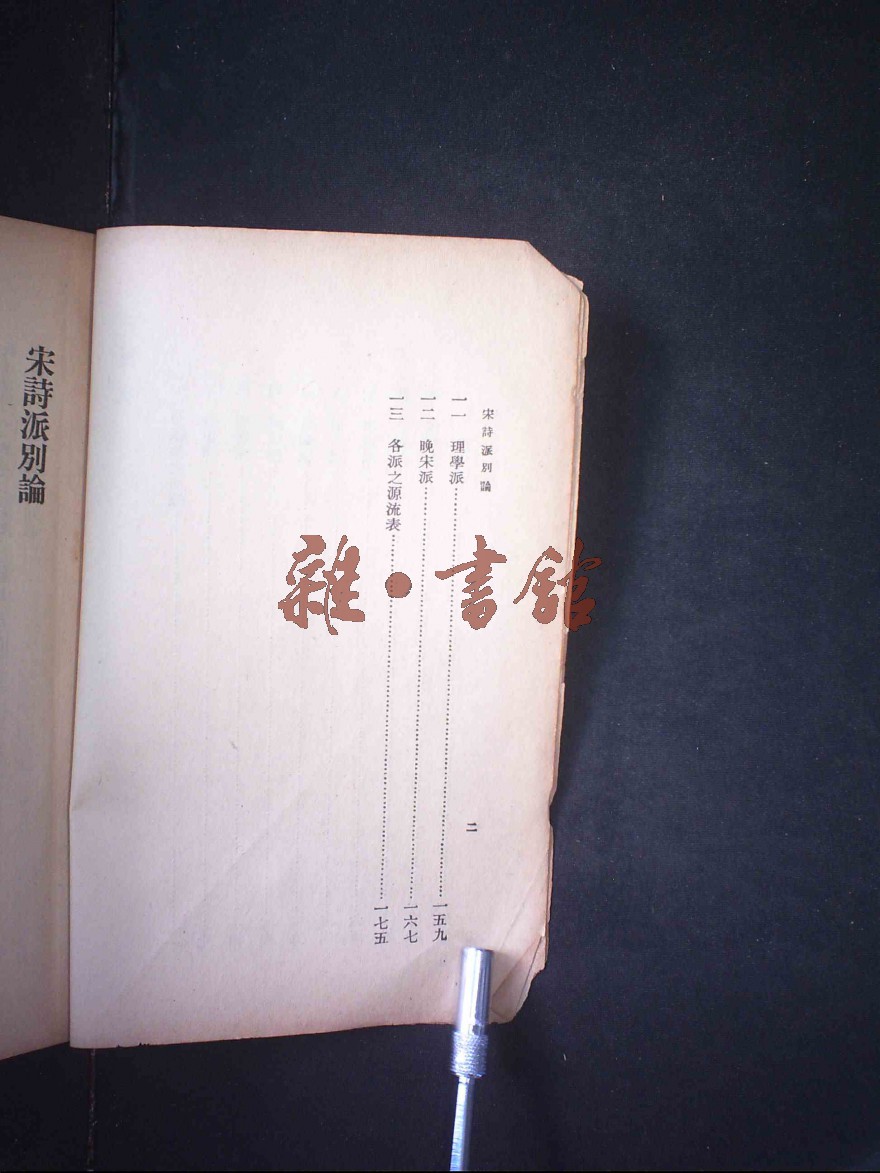 宋詩派別論
一一　理學派……一五九
一二　晚宋派……一六七
一三　各派之源流表……一七五
二
宋詩派別論
雜·書館